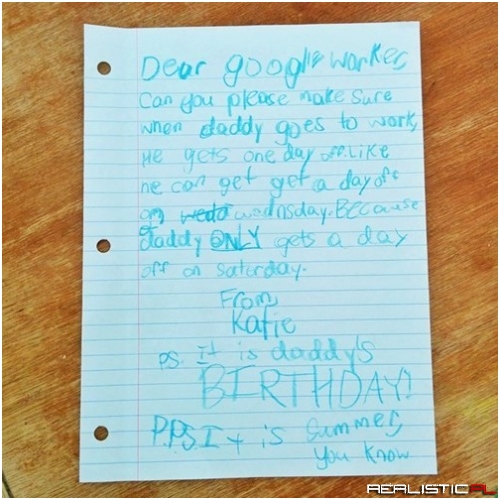 Dear google worker,
Can you please make sure
when daddy goes to work,
He gets one day off. Like
he can get get a day off
on wedo wednsday. BECause
daddy ONLY gets a day
off on saturday.
From,
Katie
ps. It is daddy's
BIRTHDAY!
P.P.S. It is Summer,
you know
REALISTIC.PL